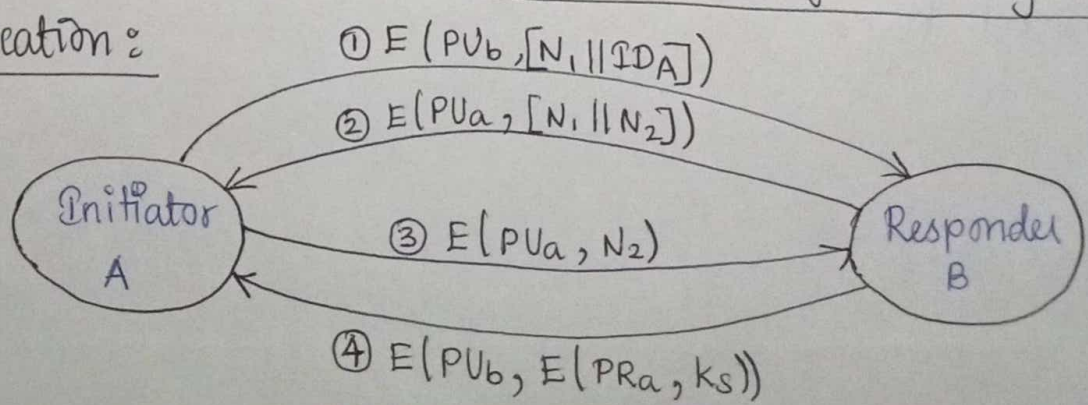 eation :
① E ( PUb , [ N1 || IDA ] )
② E ( PUa , [ N1 || N2 ] )
Initiator
A
③ E ( PUa , N2 )
Responder
B
④ E ( PUb , E ( PRa , Ks ) )